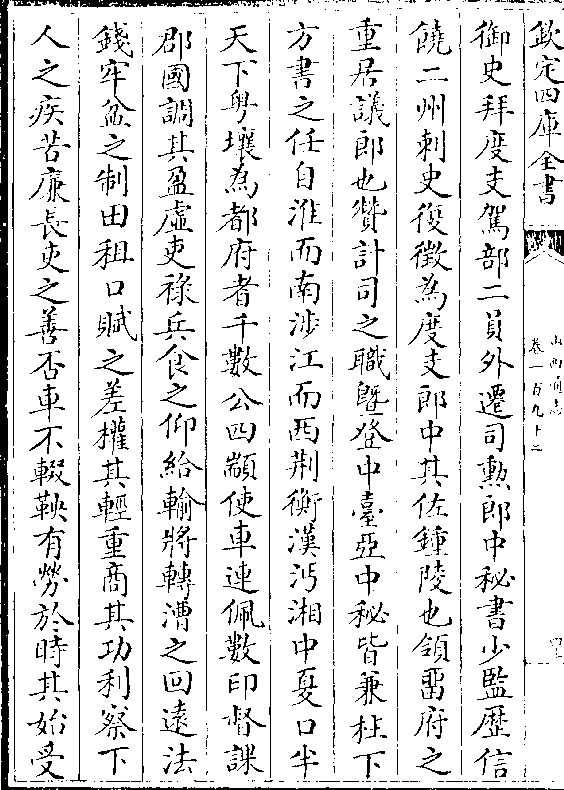 欽定四庫全書
山西通志
卷一百九十三
御史拜度支駕部二員外遷司勲郎中秘書少監歴信
饒二州刺史復徴為度支郎中其佐鍾陵也領留府之
重居議郎也贊計司之職曁登中臺亞中秘皆兼柱下
方書之任自淮而南涉江而西荆衡漢沔湘中夏口半
天下粤壤為都府者千數公四顓使車連佩數印督課
郡國調其盈虚吏祿兵食之仰給輸將轉漕之回遠法
錢牢盆之制田租口賦之差權其輕重商其功利察下
人之疾苦廉長吏之善否車不輟鞅有勞於時其始受